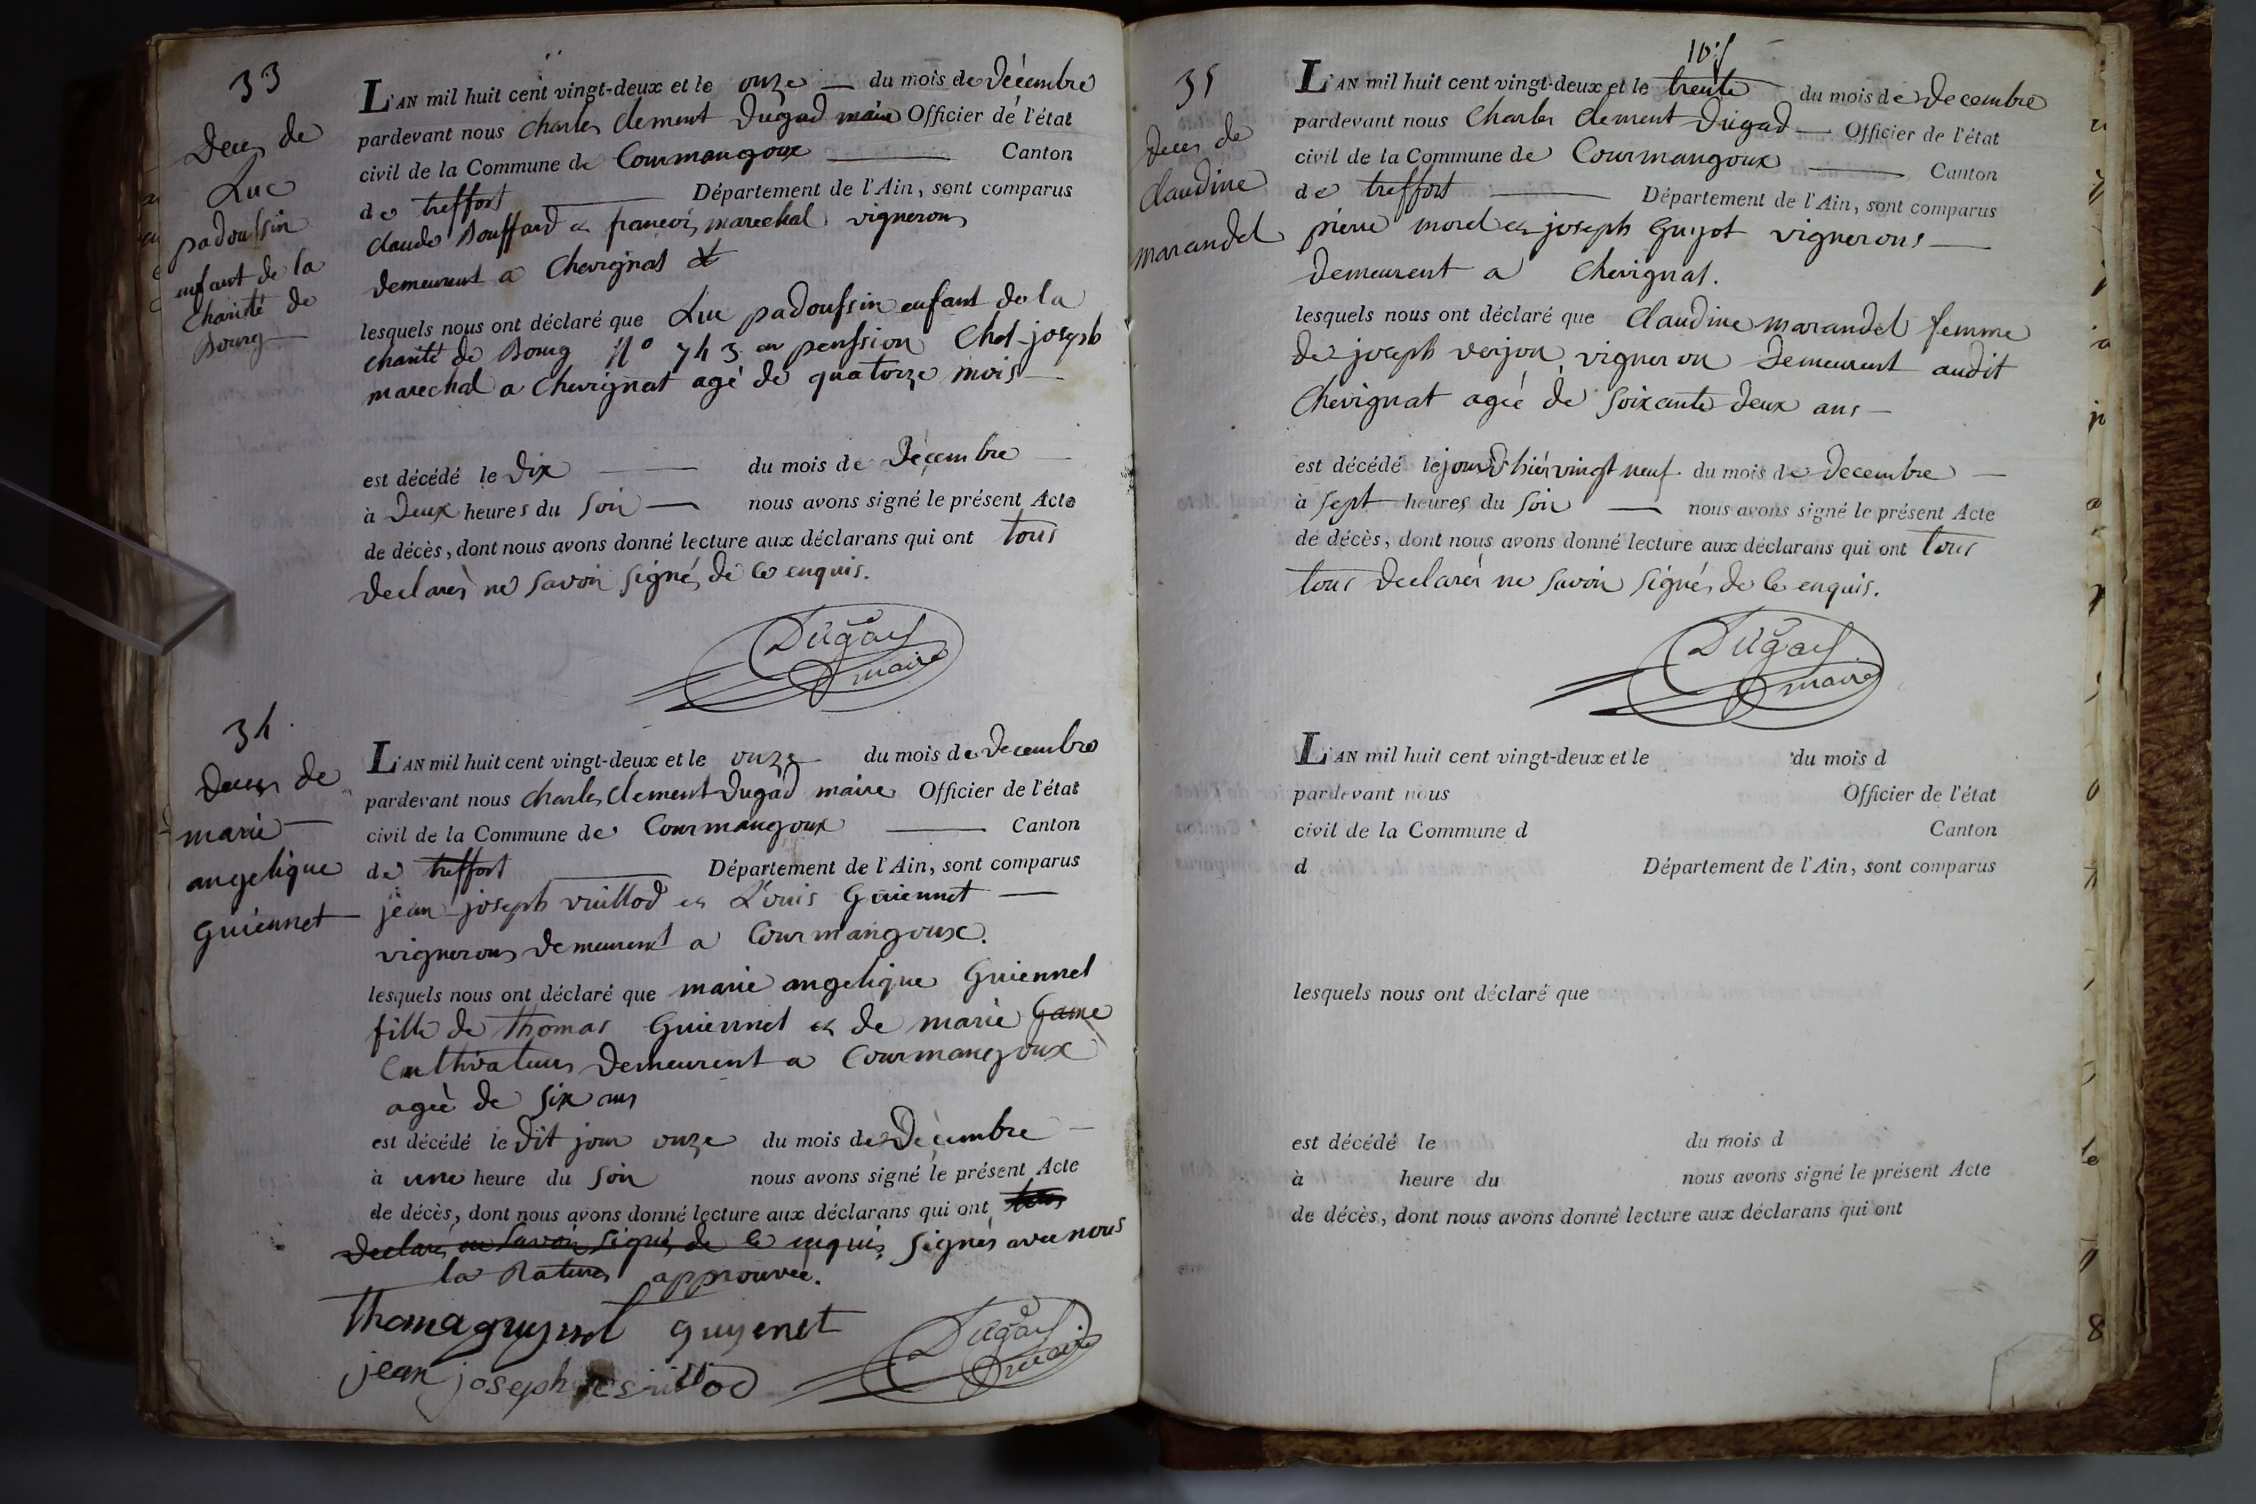 33
Deces de
Luc
padoussin
enfant de la
Charité de
Bourg
L'AN mil huit cent vingt-deux et le onze du mois de Décembre
pardevant nous Charles Clement Dugad maire Officier de l'état
civil de la Commune de Courmangoux Canton
de treffort Département de l'Ain, sont comparus
Claude Bouffard et francois marechal vignerons
demeurent a Chevignat
lesquels nous ont déclaré que Luc padoussin enfant de la
charité de Bourg N° 743 en penssion Chef joseph
marechal a Chevignat agé de quatorze mois
est décédé le Dix du mois de Décembre
à Deux heures du Soir nous avons signé le présent Acte
de décès, dont nous avons donné lecture aux déclarans qui ont tous
declarés ne savoir signés de ce enquis.
Dugad
maire
34
Deces de
marie
angelique
Guiennet
L'AN mil huit cent vingt-deux et le onze du mois de Decembre
pardevant nous Charles Clement Dugad maire Officier de l'état
civil de la Commune de Courmangoux Canton
de treffort Département de l'Ain, sont comparus
jean joseph vuillod et Louis Guiennet
vignerons demeurent a Courmangoux.
lesquels nous ont déclaré que marie angelique Guiennet
fille de Thomas Guiennet et de marie Game
Cultivateurs Demeurent a Courmangoux
agée de six ans
est décédé le dit jour onze du mois de Decembre
à une heure du Soir nous avons signé le présent Acte
de décès, dont nous avons donné lecture aux déclarans qui ont tous
Declarés ne savoir signés de ce enquis signés avec nous
la Rature approuvée.
Thoma guyenet guyenet
jean joseph vuillod
Dugad
maire
35
Deces de
Claudine
marandel
L'AN mil huit cent vingt-deux et le trente du mois de Decembre
pardevant nous Charles Clement Dugad Officier de l'état
civil de la Commune de Courmangoux Canton
de treffort Département de l'Ain, sont comparus
pierre morel et joseph Guyot vignerons
demeurent a Chevignat.
lesquels nous ont déclaré que Claudine marandel femme
de joseph verjon vigneron Demeurent audit
Chevignat agée de soixante deux ans
est décédé le jour d'hier vingt neuf du mois de Decembre
à sept heures du Soir nous avons signé le présent Acte
de décès, dont nous avons donné lecture aux déclarans qui ont tous
tous Declarés ne savoir signés de ce enquis.
Dugad
maire
L'AN mil huit cent vingt-deux et le du mois d
pardevant nous Officier de l'état
civil de la Commune d Canton
d Département de l'Ain, sont comparus
lesquels nous ont déclaré que
est décédé le du mois d
à heure du nous avons signé le présent Acte
de décès, dont nous avons donné lecture aux déclarans qui ont